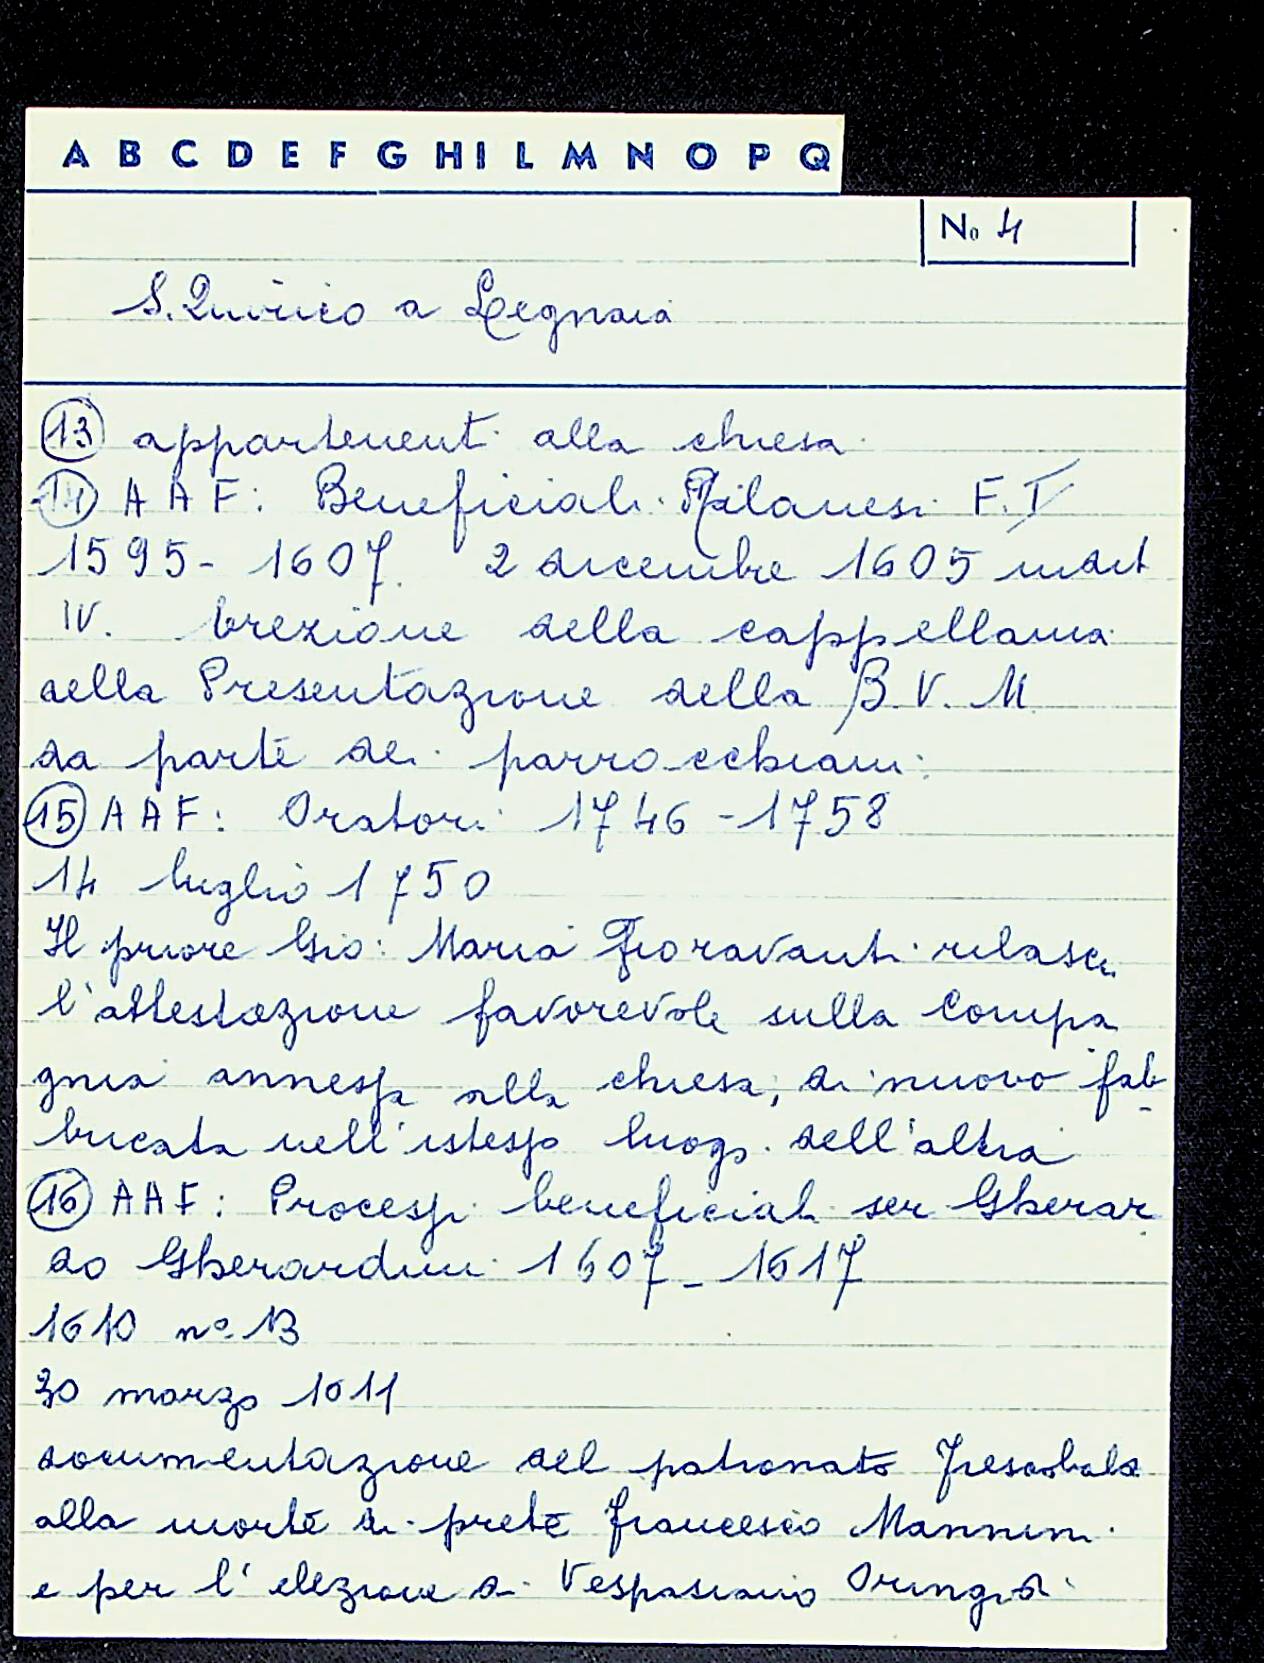 A B C D E F G H I L M N O P Q
No 4
S. Quirico a Legnaia
13 appartenenti alla chiesa
14 AAF: Beneficiali Milanesi F. I
1595-1607. 2 dicembre 1605 indit
IV. Erezione della cappellania
della Presentazione della B. V. M
da parte dei parrocchiani
15 AAF: Oratori 1746-1758
14 luglio 1750
Il priore Gio: Maria Fioravanti rilascia
l'attestazione favorevole sulla Compa
gnia annessa alla chiesa, di nuovo fab
bricata nell'istesso luogo dell'altra
16 AAF: Processi beneficiali ser Gherar
do Gherardini 1607-1617
1610 n° 13
30 marzo 1611
documentazione del patronato Frescobaldi
alla morte di prete Francesco Mannini
e per l'elezione di Vespasiano